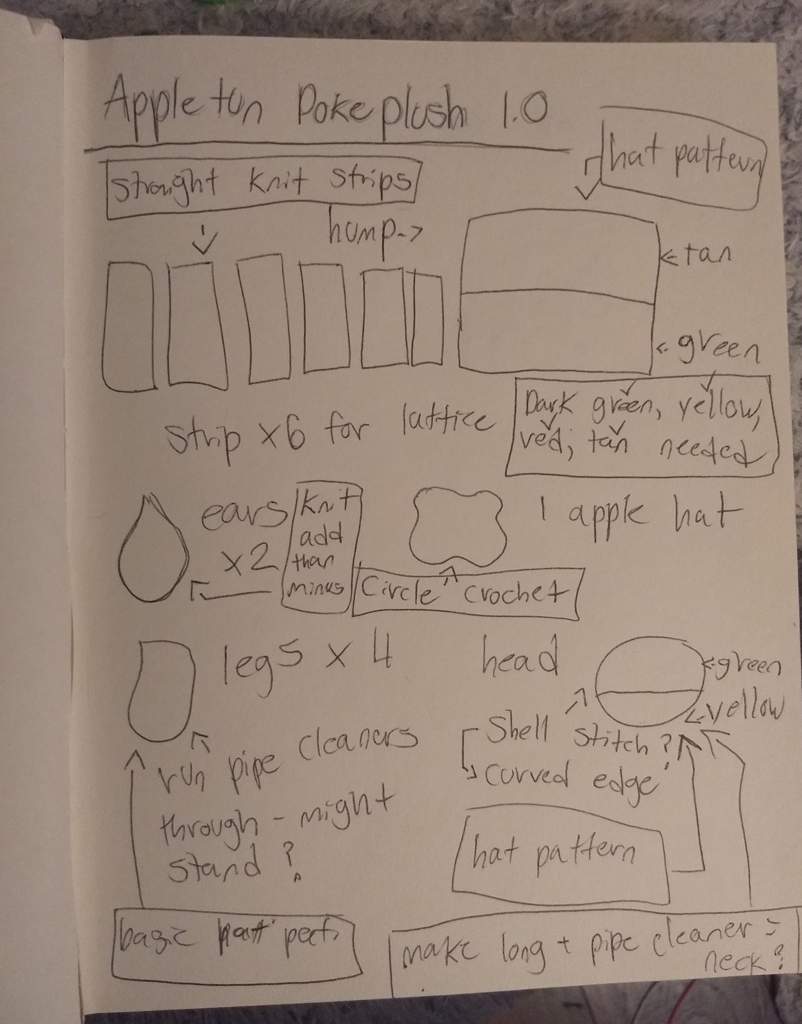 Appletun Pokeplush 1.0
hat pattern
straight knit strips
hump->
<-tan
<-green
strip x6 for lattice
Dark green, yellow,
red, tan needed
ears
x2
knit
add
than
minus
1 apple hat
Circle crochet
legs x 4
head
<-green
<-yellow
Shell stitch?
curved edge
run pipe cleaners
through - might
stand?
hat pattern
basic
make long + pipe cleaner =
neck?